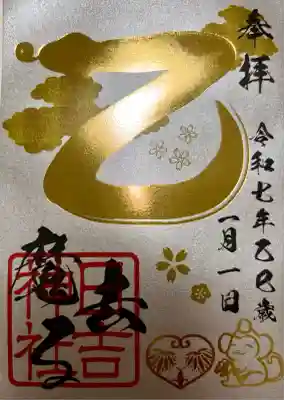 奉拝
令和七年乙巳歳
一月一日
乙
日吉
神社
魔去る